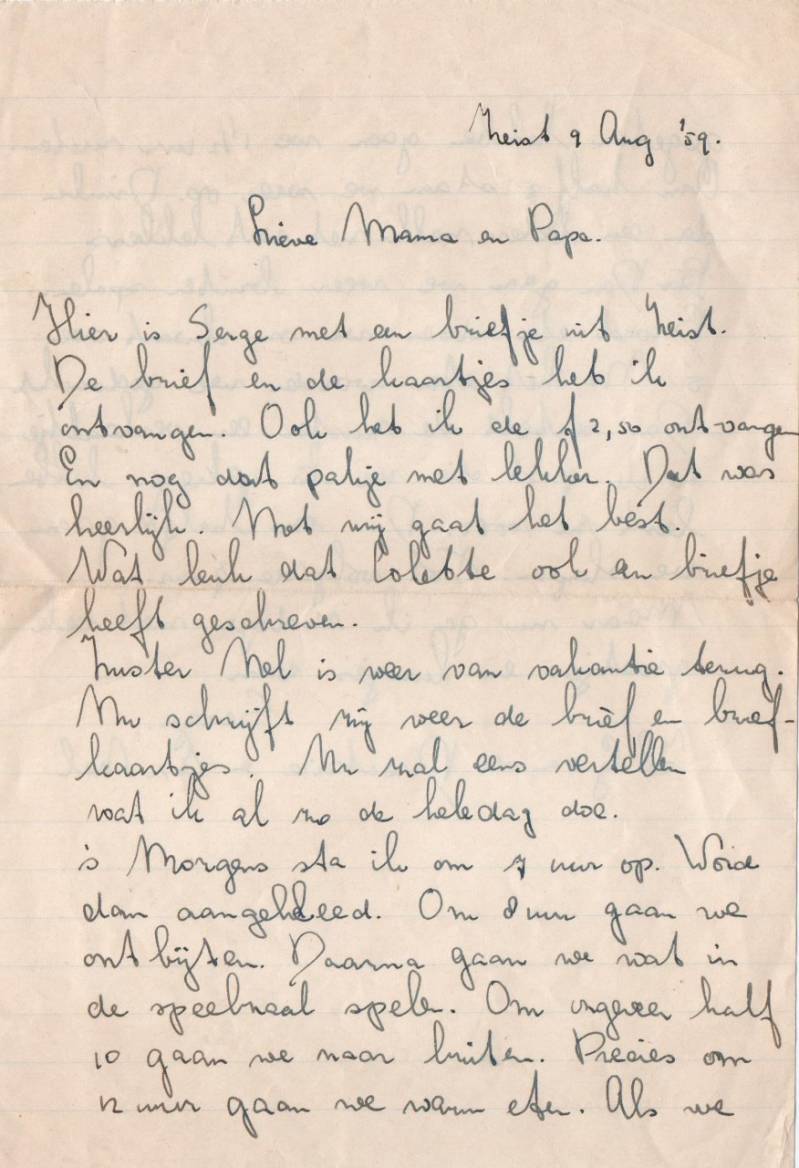 Zeist 9 Aug '59.
Lieve Mama en Papa.
Hier is Serge met een briefje uit Zeist.
De brief en de kaartjes heb ik
ontvangen. Ook heb ik de f 2,50 ontvangen
En nog dat pakje met lekkers. Dat was
heerlijk. Met mij gaat het best.
Wat leuk dat Colette ook een briefje
heeft geschreven.
Zuster Nel is weer van vakantie terug.
Nu schrijft zij weer de brief en brief-
kaartjes. Nu zal eens vertellen
wat ik al zo de hele dag doe.
's Morgens sta ik om 7 uur op. Word
dan aangekleed. Om 8 uur gaan we
ontbijten. Daarna gaan we wat in
de speelzaal spelen. Om ongeveer half
10 gaan we naar buiten. Precies om
12 uur gaan we warm eten. Als we